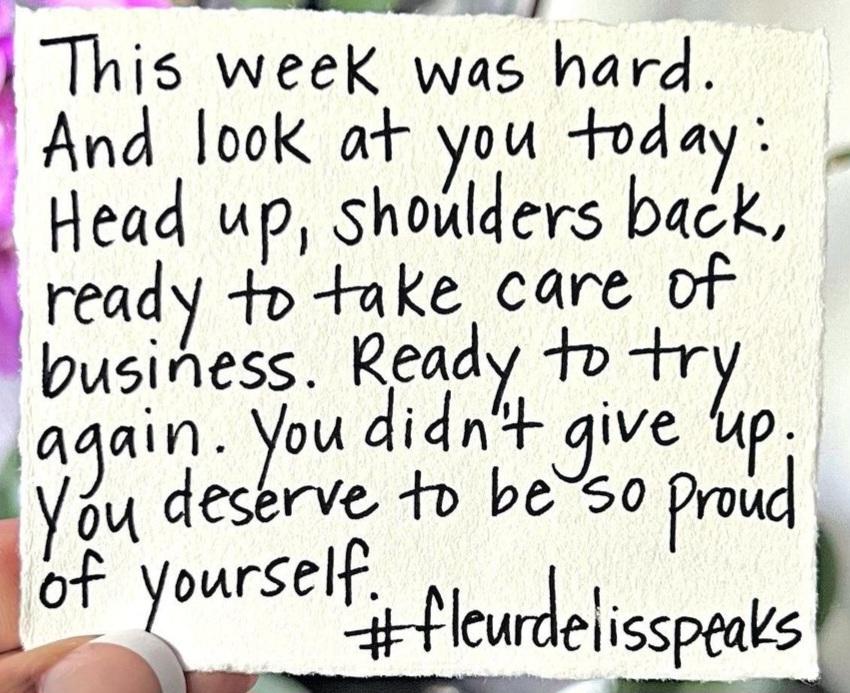 This week was hard.
And look at you today:
Head up, shoulders back,
ready to take care of
business. Ready to try
again. You didn't give up.
You deserve to be so proud
of yourself.
#fleurdelisspeaks